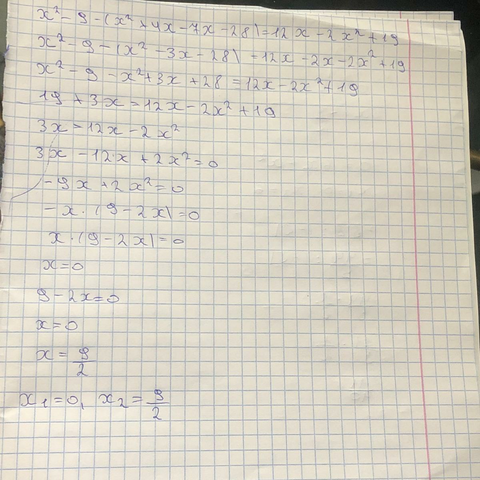 x² - 9 - (x² + 4x - 7x - 28) = 12x - 2x² + 19
x² - 9 - (x² - 3x - 28) - 12x - 2x - 2x² + 19
x² - 9 - x² + 3x + 28 = 12x - 2x² + 19
19 + 3x = 12x - 2x² + 19
3x = 12x - 2x²
3x - 12x + 2x² = 0
-9x + 2x² = 0
-x · (9 - 2x) = 0
x · (9 - 2x) = 0
x = 0
9 - 2x = 0
x = 0
x = 9/2
x₁ = 0, x₂ = 9/2